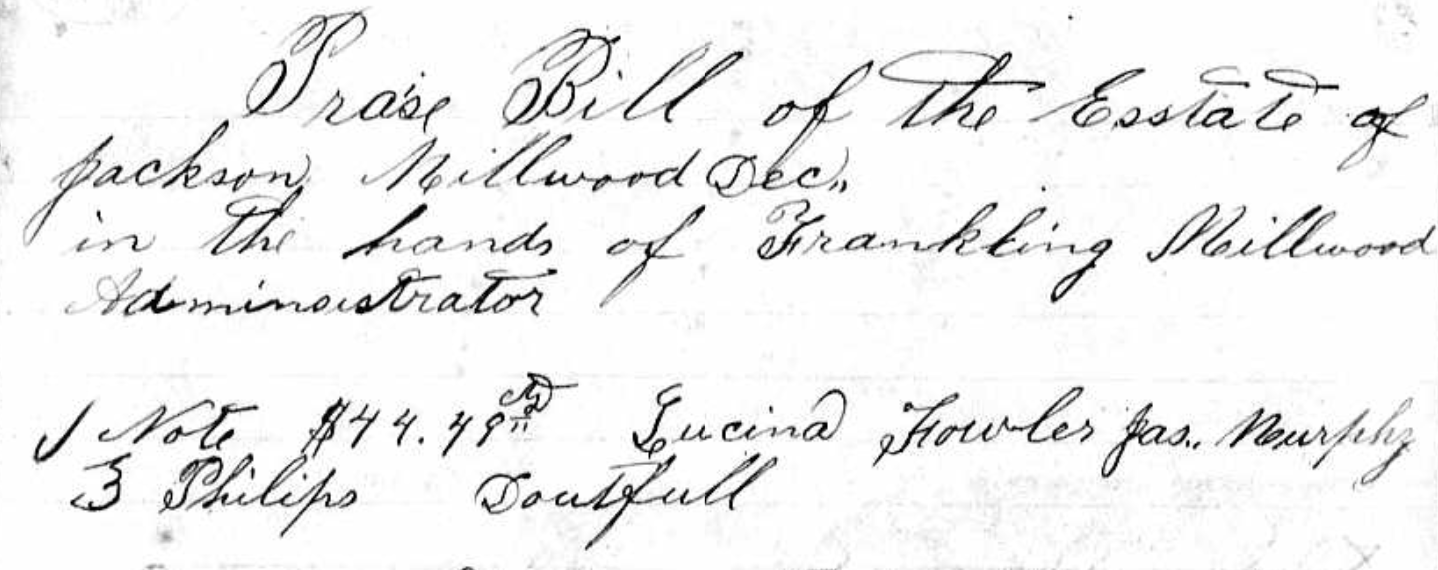 Praise Bill of the Esstate of
Jackson Millwood Dec,,
in the hands of Frankling Millwood
Adminsistrator
1 Note $44.49 cts Lucind Fowler Jas,, Murphy
3 Philips Doutfull